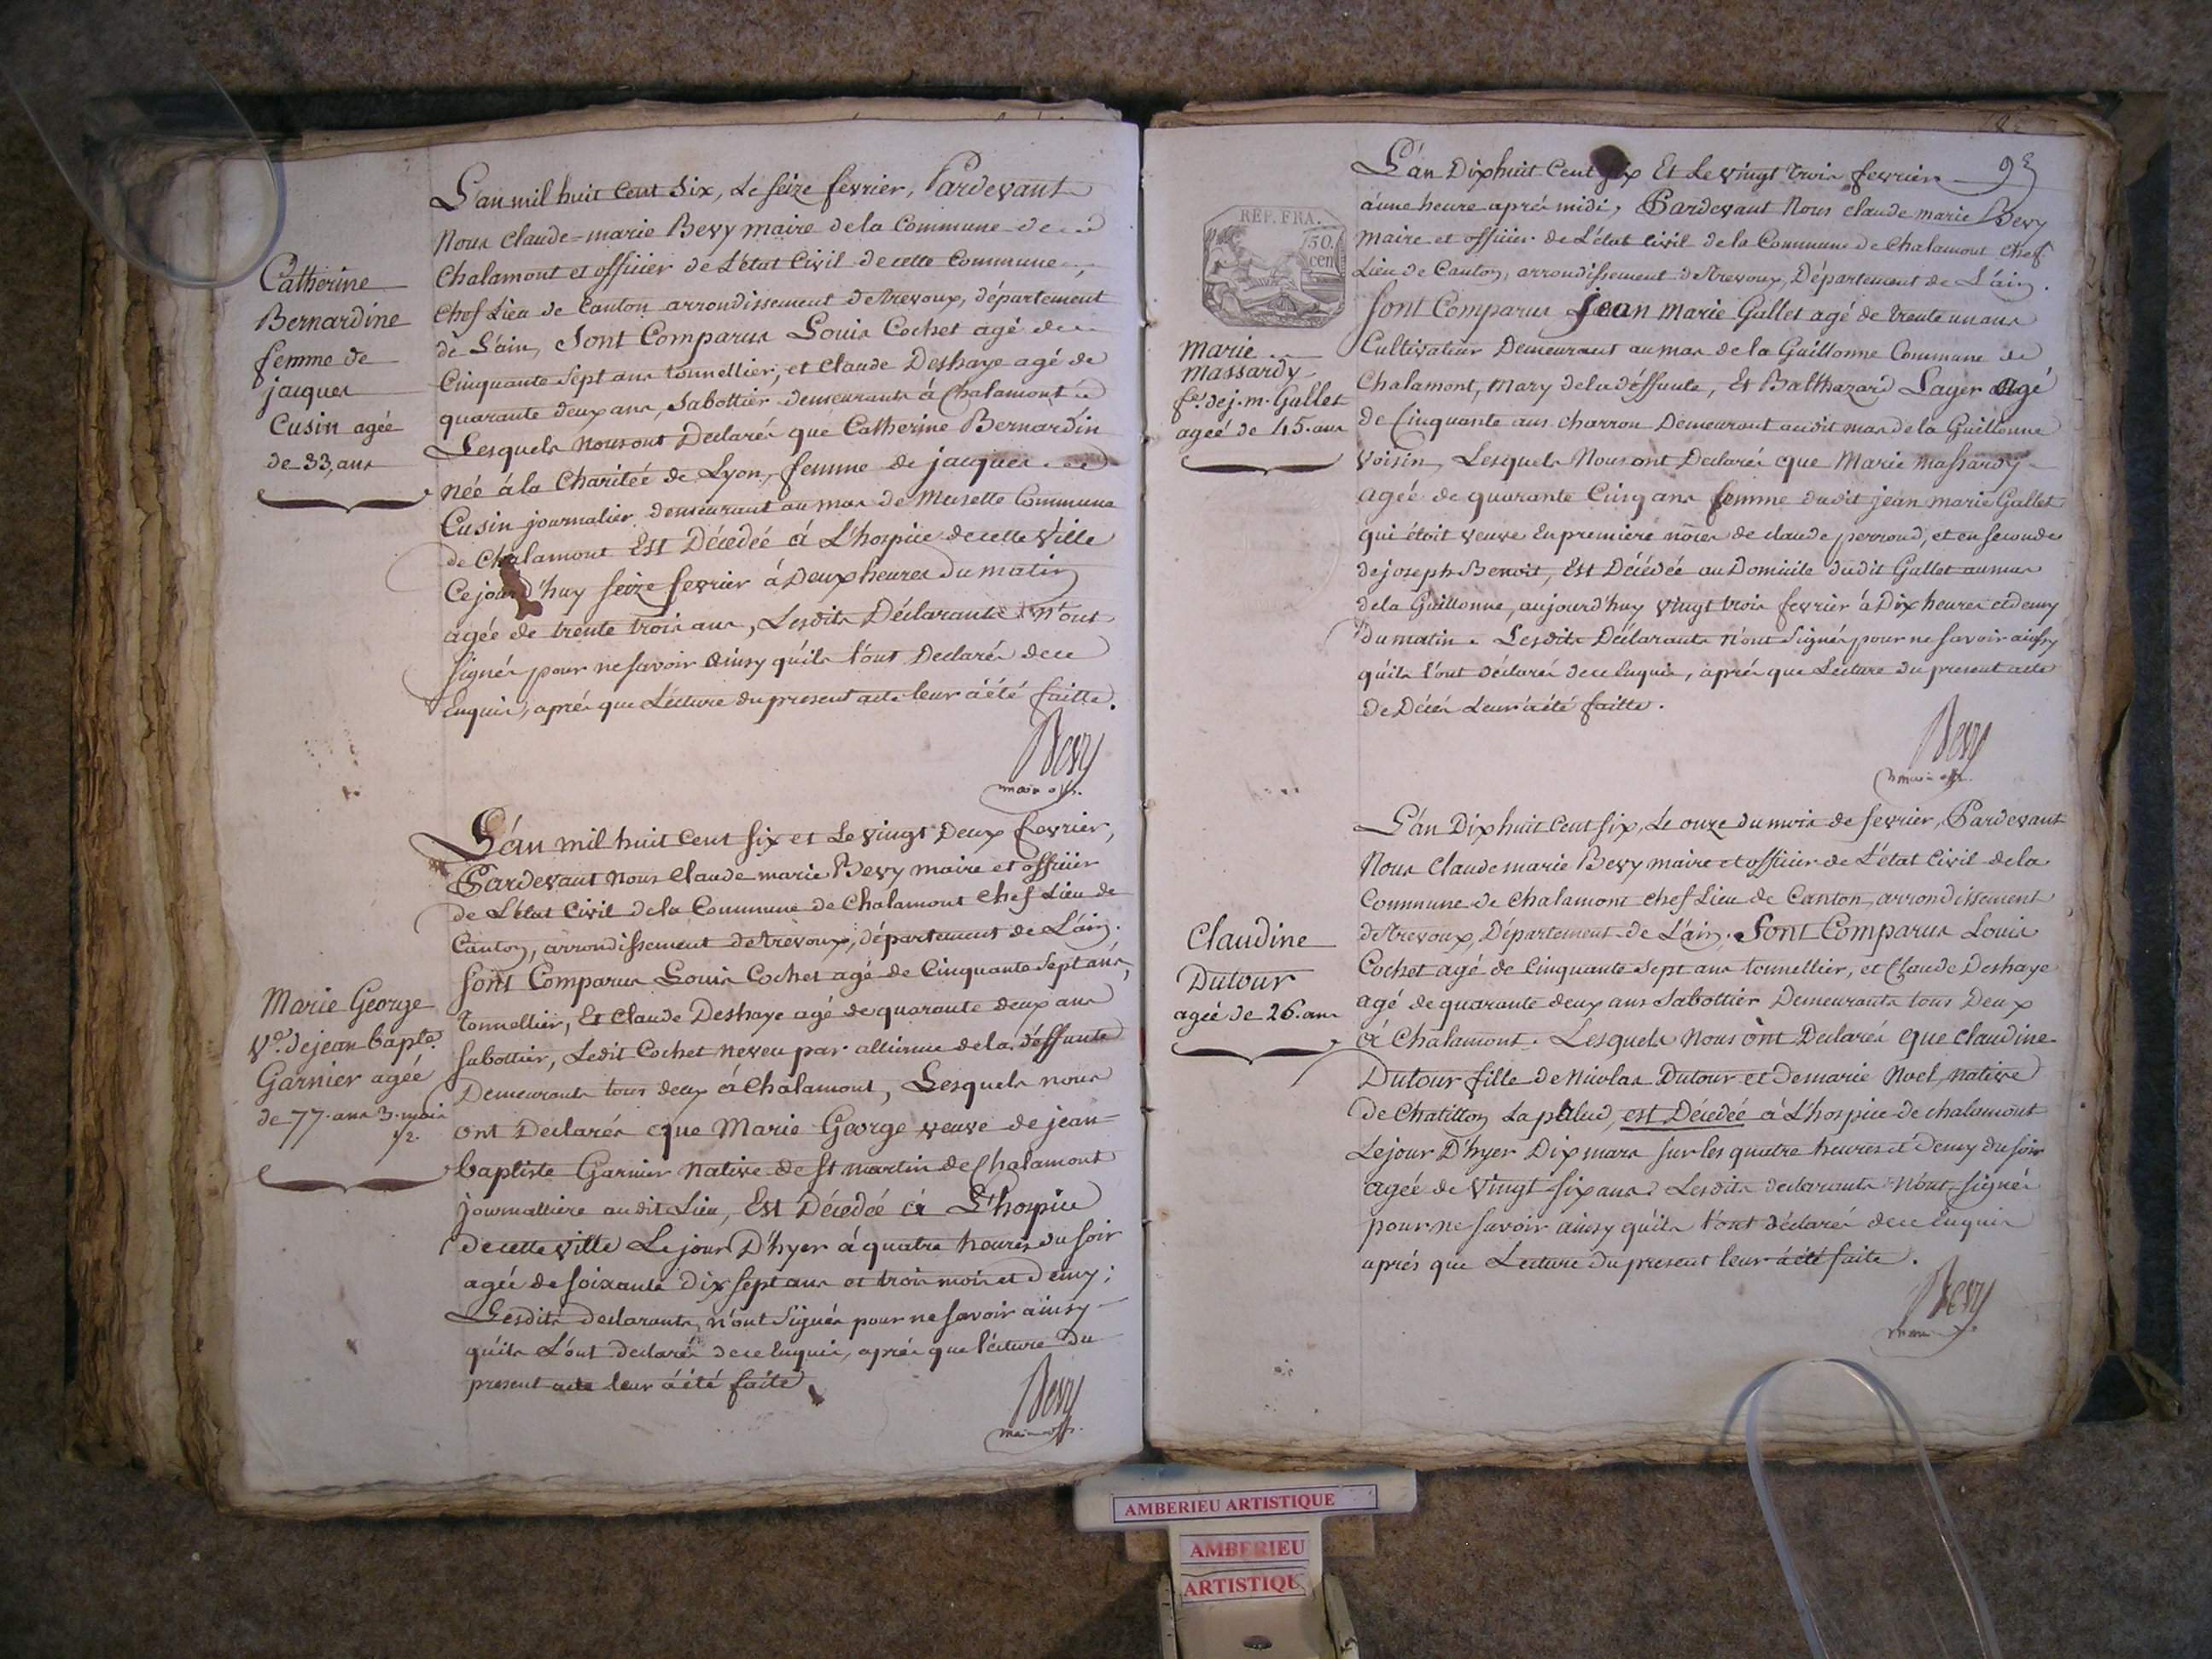 Catherine
Bernardine
femme de
jacques
Cusin agée
de 33, ans
L'an mil huit Cent Six, Le Seize fevrier, Pardevant
Nous Claude=marie Bevy maire de la Commune de
Chalamont et officier de L'état Civil de cette Commune,
Chef Lieu de Canton arrondissement de trevoux, département
de L'ain, Sont Comparus Louis Cochet agé de
Cinquante Sept ans tonnellier, et Claude Deshaye agé de
quarante deux ans, Sabottier demeurants á Chalamont
Lesquels nous ont Declarés que Catherine Bernardin
née á la Charitée de Lyon, femme de jacques
Cusin journalier demeurant au mas de Musette Commune
de Chalamont Est Décedéé á L'hospice de cette Ville
Ce jourd'huy seize fevrier á Deux heures du matin
agée de trente trois ans, Lesdits Déclarants n'ont
signés pour ne savoir ainsy qu'ils l'ont Declarés de ce
Enquis, aprés que Lecture du present acte leur á été faitte.
Bevy
maire offr.
Marie George
Ve. de jean bapte.
Garnier agéé
de 77. ans 3. mois
1/2.
L'an mil huit Cent Six et Le vingt Deux fevrier,
Pardevant nous Claude marie Bevy maire et officier
de L'état Civil de la Commune de Chalamont Chef Lieu de
Canton, arrondissement de trevoux, département de L'ain.
Sont Comparus Louis Cochet agé de Cinquante Sept ans,
tonnellier, Et Claude Deshaye agé de quarante deux ans
sabottier, Ledit Cochet neveu par allience de la déffunte
Demeurants tous deux á Chalamont, Lesquels nous
ont Declarés que Marie George veuve de jean
baptiste Garnier Native de St martin de Chalamont
journalliere au dit Lieu, Est Décedéé á L'hospice
de cette ville Le jour D'hyer á quatre heures du soir
agée de soixante dix sept ans et trois mois et demy;
Lesdits declarants, n'ont Signés pour ne savoir ainsy
qu'ils L'ont declarés de ce Enquis, aprés que lécture du
present acte leur á été faite
Bevy
maire offr.
93
REP. FRA.
50.
cen
Marie
Massardy
fe. de j. m. Gallet
ageé de 45. ans
L'an Dixhuit Cent six Et Le vingt trois fevrier
á une heure aprés midi, Pardevant Nous Claude marie Bevy
Maire et officier de L'état Civil de la Commune de Chalamont Chef
Lieu de Canton, arrondissement de trevoux, Département de L'ain.
Sont Comparus Jean Marie Gallet agé de trente un ans
Cultivateur Demeurant au mas de la Guillonne Commune de
Chalamont, Mary de la déffunte, Et Balthazard Layer agé
de Cinquante ans charron Demeurant audit mas de la Guillonne
Voisin, Lesquels Nous ont Declarés que Marie Massardy
agée de quarante Cinq ans femme dudit jean marie Gallet
qui étoit veuve En premiere noces de claude perroud, et en seconde
de joseph Benoit, Est Décédée au Domicile dudit Gallet au mas
de la Guillonne, aujourd'huy vingt trois fevrier á Dix heures et demy
Du matin. Lesdits Déclarants n'ont Signés pour ne savoir ainsy
qu'ils l'ont déclarés de ce Enquis, aprés que Lecture du present acte
de Décés Leur á été faitte.
Bevy
maire offr.
Claudine
Dutour
ageé de 26. ans
L'an Dixhuit Cent six, Le onze du mois de fevrier, Pardevant
Nous Claude marie Bevy maire et officier de L'état Civil de la
Commune de Chalamont Chef Lieu de Canton, arrondissement
de trevoux, Département de L'ain. Sont Comparus Louis
Cochet agé de Cinquante Sept ans tonnellier, et Claude Deshaye
agé de quarante deux ans Sabottier Demeurants tous Deux
á Chalamont. Lesquels Nous ont Declarés que Claudine
Dutour fille de Nicolas Dutour et de marie Noel native
de Chatillon La palud, est Décedéé á L'hospice de chalamont
Le jour D'hyer Dix mars sur les quatre heures et Demy du soir
agée de vingt six ans. Lesdits declarants N'ont signés
pour ne savoir ainsy qu'ils l'ont déclarés de ce Enquis
aprés que Lecture du present leur á été faite.
Bevy
AMBERIEU ARTISTIQUE
AMBERIEU
ARTISTIQU